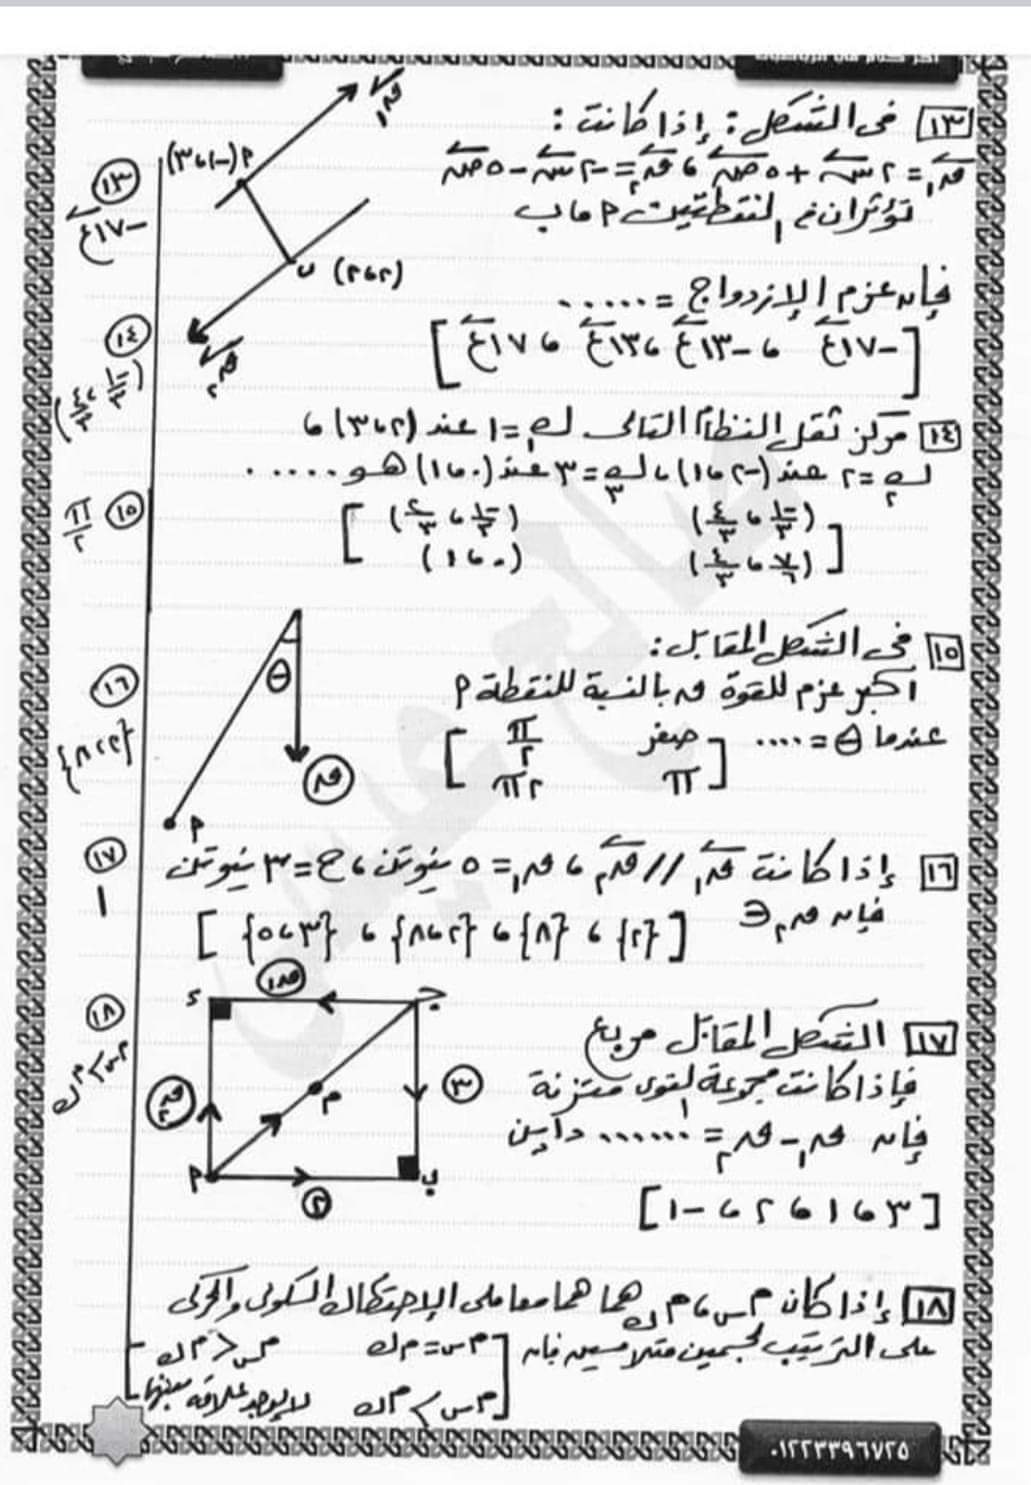 ١٣ فى الشكل : إذا كانت :
ق١ = ٢ س + ٥ ص ، ق٢ = -٢ س - ٥ ص
تؤثران فى النقطتين P ، ب
فإن عزم الازدواج = ......
[ -١٧ ع ، -١٣ ع ، ١٣ ع ، ١٧ ع ]
ق١
P (-١ ، ٣)
ب (٢ ، ٢)
ق٢
١٤ مركز ثقل النظام التالى ك١ = ١ عند (٢ ، ٣) ،
ك٢ = ٢ عند (-٢ ، ١) ، ك٣ = ٣ عند (٠ ، ١) هو .....
[ (-١/٣ ، ٤/٣) (-١/٣ ، ٢/٣)
(٧/٦ ، ٤/٣) (٠ ، ١) ]
١٥ فى الشكل المقابل :
أكبر عزم للقوة ق بالنسبة للنقطة P
عندما θ = .... [ صفر π/٢
π ٢π ]
θ
ق
P
١٦ إذا كانت ق١ // ق٢ ، ق١ = ٥ نيوتن ، ح = ٣ نيوتن
فإن ق٢ ∈
[ {٢} ، {٨} ، {٢ ، ٨} ، {٣ ، ٥} ]
١٧ الشكل المقابل مربع
فإذا كانت مجموعة القوى متزنة
فإن ق١ - ق٢ = ...... داين
[ ٣ ، ١ ، ٢ ، -١ ]
ق١
ء
ج
ق٢
م
٣
P
ب
٢
١٨ إذا كان م س ، م ك هما معاملى الاحتكاك السكونى والحركى
على الترتيب لجسمين متلامسين فإن [ م س = م ك م س < م ك
م س > م ك لا يوجد علاقة بينهما ]
١٣
-١٧ ع
١٤
(-١/٣ ، ٤/٣)
١٥
π/٢
١٦
{٢ ، ٨}
١٧
١
١٨
م س > م ك
٠١٢٢٣٣٩٦٧٢٥